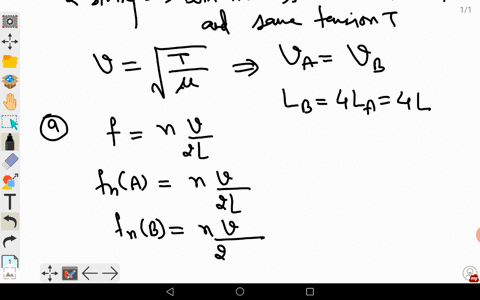 1/1
and same tension T
v = √(T/μ) ⇒ V_A = V_B
L_B = 4L_A = 4L
(a) f = n v/2L
f_n(A) = n v/2L
f_n(B) = n v/2
T
1